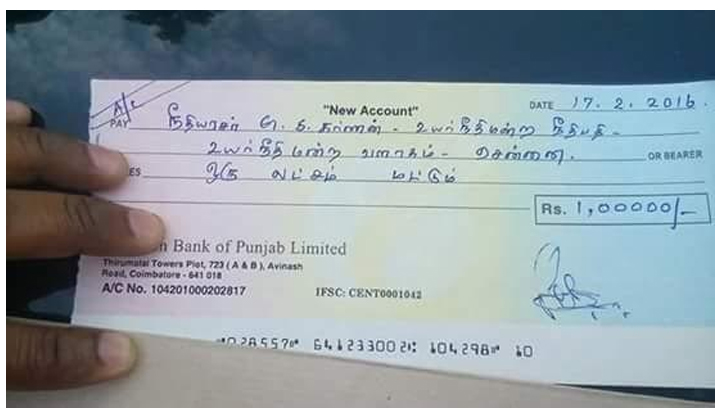 A/c
"New Account"
DATE 17. 2. 2016.
PAY நீதியரசர் சி. த. கர்ணன் - உயர்நீதிமன்ற நீதிபதி -
உயர்நீதி மன்ற வளாகம் - சென்னை. OR BEARER
ஒரு லட்சம் மட்டும்
Rs. 1,00000/-
Bank of Punjab Limited
Thirumalai Towers Plot, 723 ( A & B ), Avinash
Road, Coimbatore - 641 018
A/C No. 104201000202817 IFSC: CENT0001042
028557 641233002 104298 10